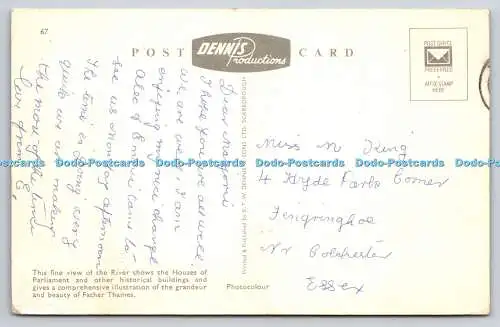 67
POST CARD
DENNIS
Productions
POST OFFICE
PREFERRED
AFFIX STAMP
HERE
Dear Naomi
I hope you are all well.
We are well. I am
enjoying my nice change
Also of E mice came to
see us monday afternoon
The time is going very
quite we are makeing
the most of the time
love from E,
Printed & Published by E. T. W. DENNIS & SONS LTD. SCARBOROUGH
Miss M King
4 Hyde Park Corner
Fingringhoe
Nr Colchester
Essex
This fine view of the River shows the Houses of
Parliament and other historical buildings and
gives a comprehensive illustration of the grandeur
and beauty of Father Thames.
Photocolour
Dodo-Postcards Dodo-Postcards Dodo-Postcards Dodo-Postcards Dodo-Postcards